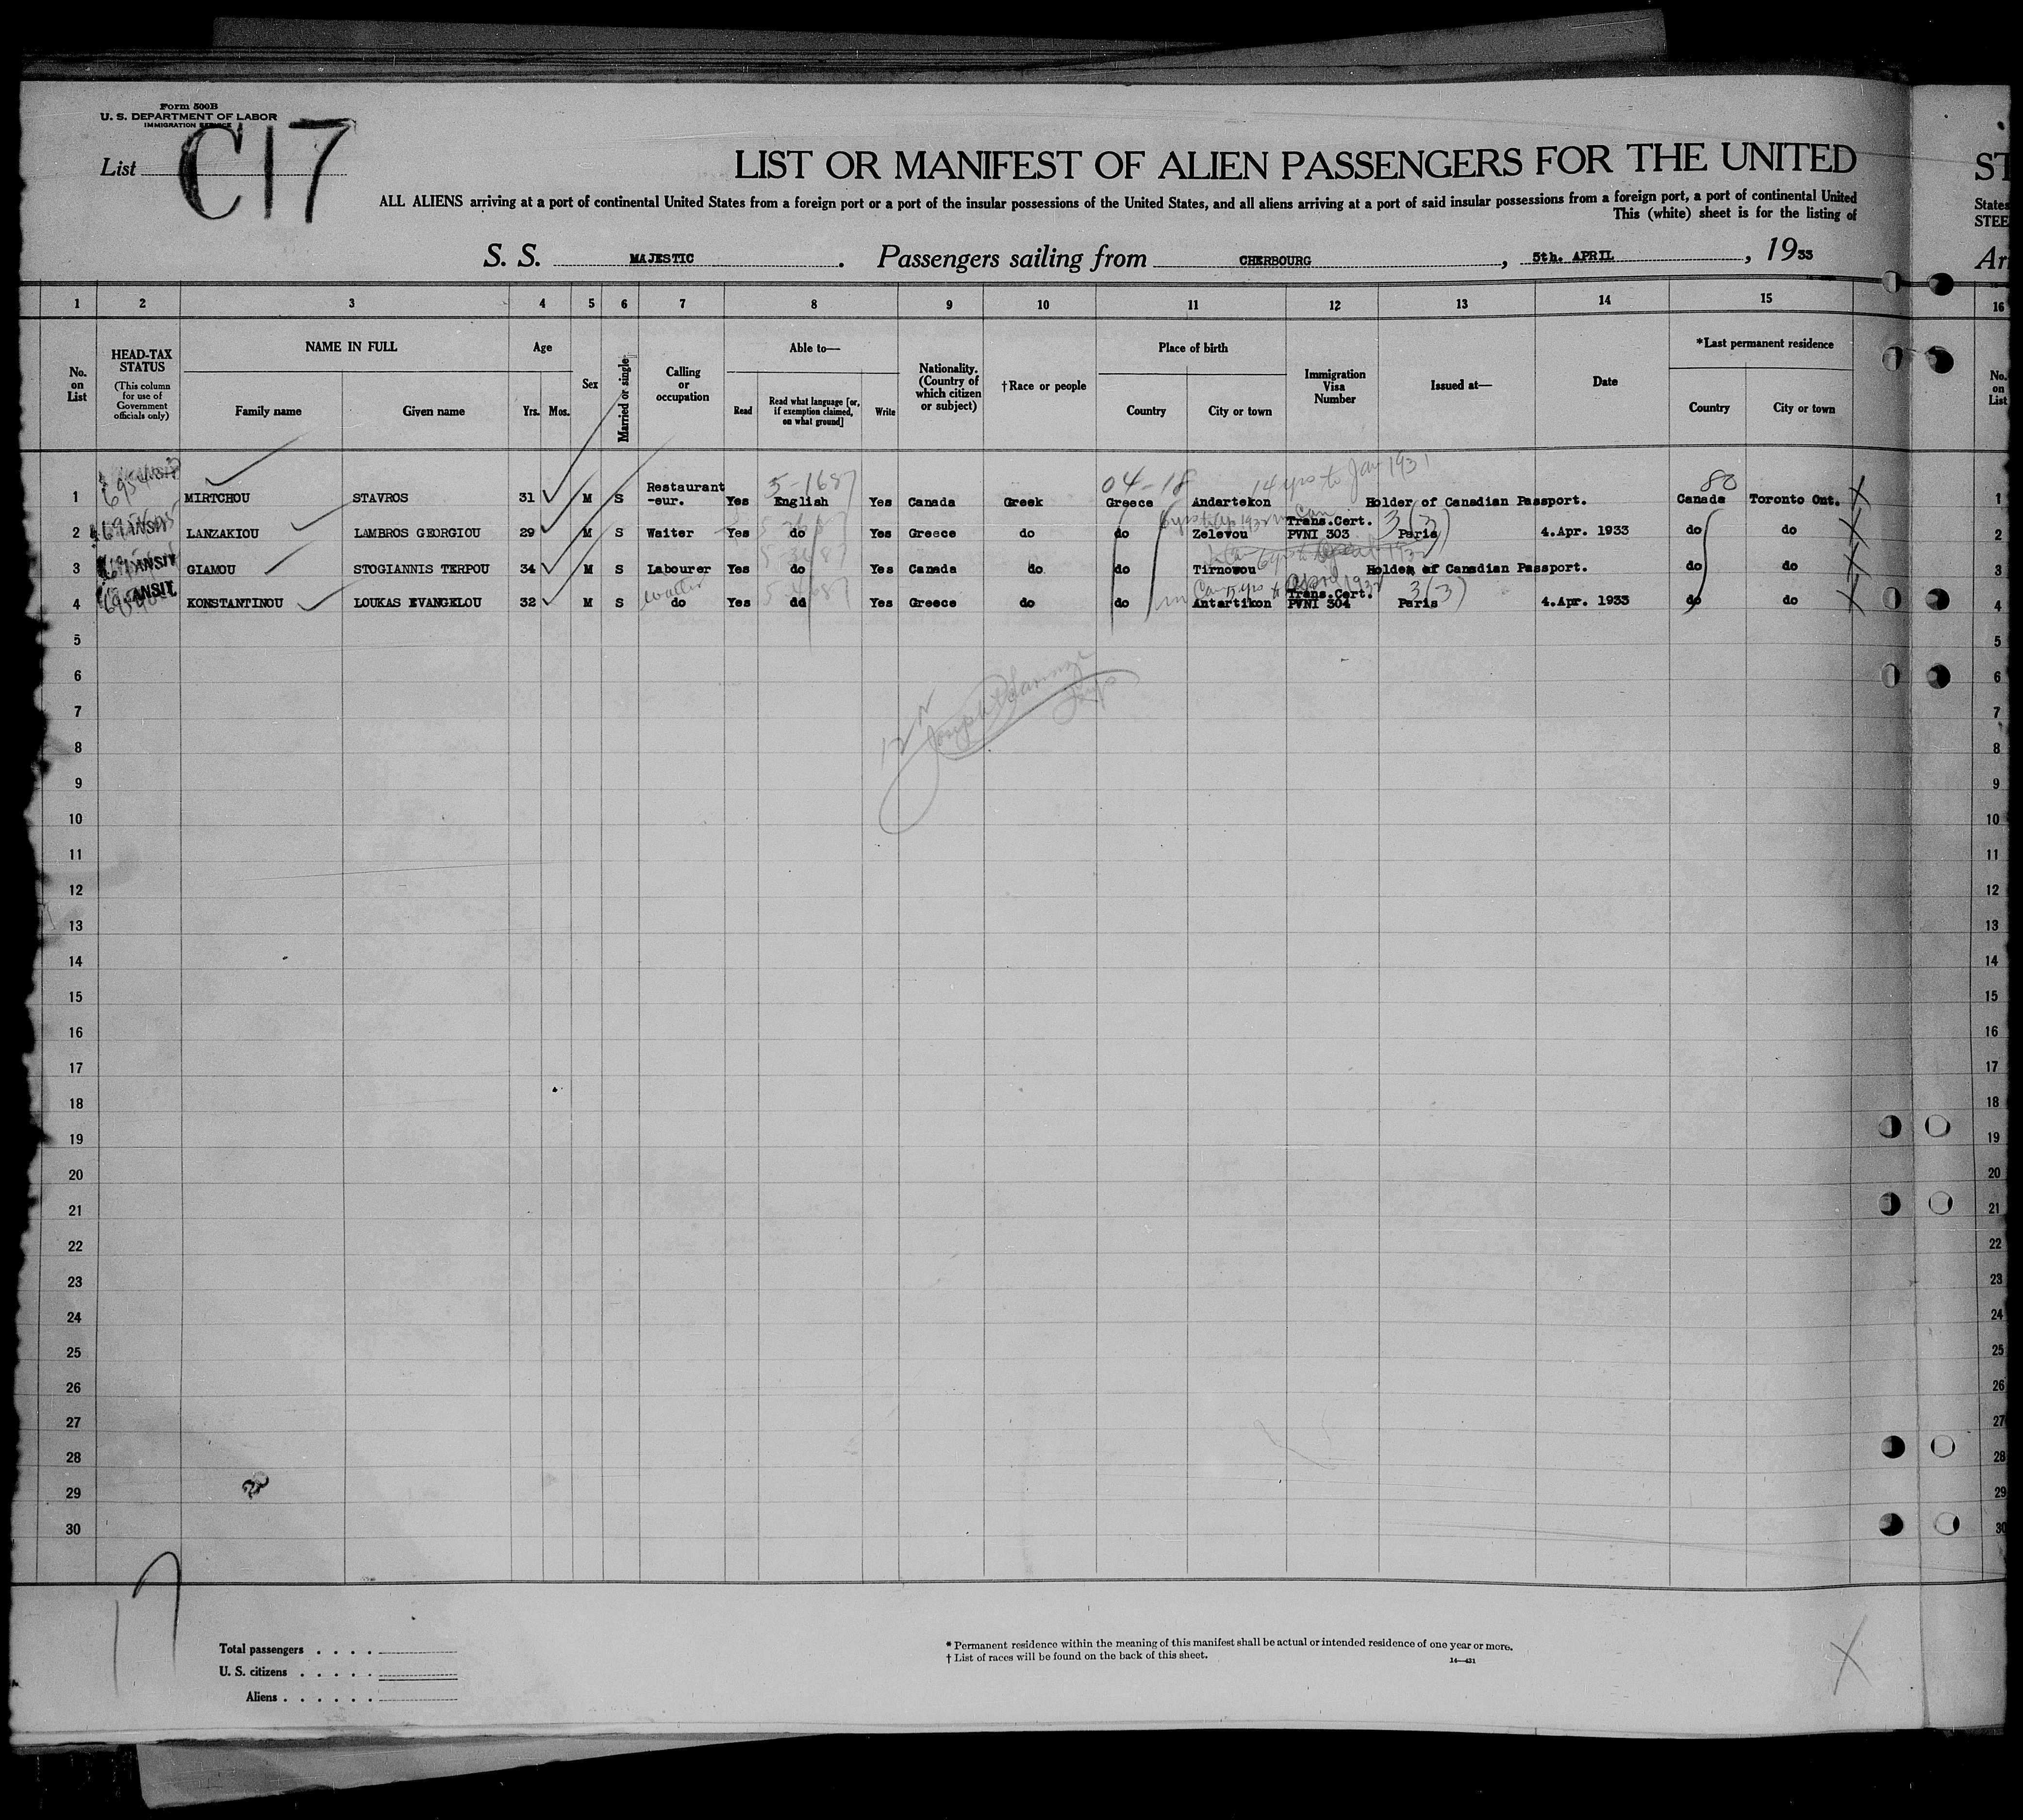 Form 500B
U. S. DEPARTMENT OF LABOR
IMMIGRATION SERVICE
List C17
LIST OR MANIFEST OF ALIEN PASSENGERS FOR THE UNITED ST
ALL ALIENS arriving at a port of continental United States from a foreign port or a port of the insular possessions of the United States, and all aliens arriving at a port of said insular possessions from a foreign port, a port of continental United States
This (white) sheet is for the listing of STEE
S. S. MAJESTIC. Passengers sailing from CHERBOURG, 5th. APRIL, 1933 Ar
1 2 3 4 5 6 7 8 9 10 11 12 13 14 15 16
No. on List
HEAD-TAX STATUS (This column for use of Government officials only)
NAME IN FULL
Family name Given name
Age
Yrs. Mos.
Sex
Married or single
Calling or occupation
Able to—
Read Read what language [or, if exemption claimed, on what ground] Write
Nationality. (Country of which citizen or subject)
†Race or people
Place of birth
Country City or town
Immigration Visa Number
Issued at—
Date
*Last permanent residence
Country City or town
No. on List
5-1687 04-18 14 yrs to Jan 1931 80
1 MIRTCHOU STAVROS 31 M S Restaurant-eur. Yes English Yes Canada Greek Greece Andartekon Holder of Canadian Passport. Canada Toronto Ont. X 1
2 TRANSIT LANZAKIOU LAMBROS GEORGIOU 29 M S Waiter Yes do Yes Greece do do Zelevou Trans.Cert. PVNI 303 Paris 3(3) 4.Apr. 1933 do do X 2
3 TRANSIT GIAMOU STOGIANNIS TERPOU 34 M S Labourer Yes do Yes Canada do do Tirnovou Holder of Canadian Passport. do do X 3
waiter
4 TRANSIT KONSTANTINOU LOUKAS EVANGELOU 32 M S do Yes do Yes Greece do do Antartikon Trans.Cert. PVNI 304 Paris 3(3) 4.Apr. 1933 do do X 4
5 5
6 6
7 7
8 8
9 9
10 10
11 11
12 12
13 13
14 14
15 15
16 16
17 17
18 18
19 19
20 20
21 21
22 22
23 23
24 24
25 25
26 26
27 27
28 28
29 29
30 30
17
Total passengers . . . .
U. S. citizens . . . . .
Aliens . . . . . .
* Permanent residence within the meaning of this manifest shall be actual or intended residence of one year or more.
† List of races will be found on the back of this sheet.
14—431
X